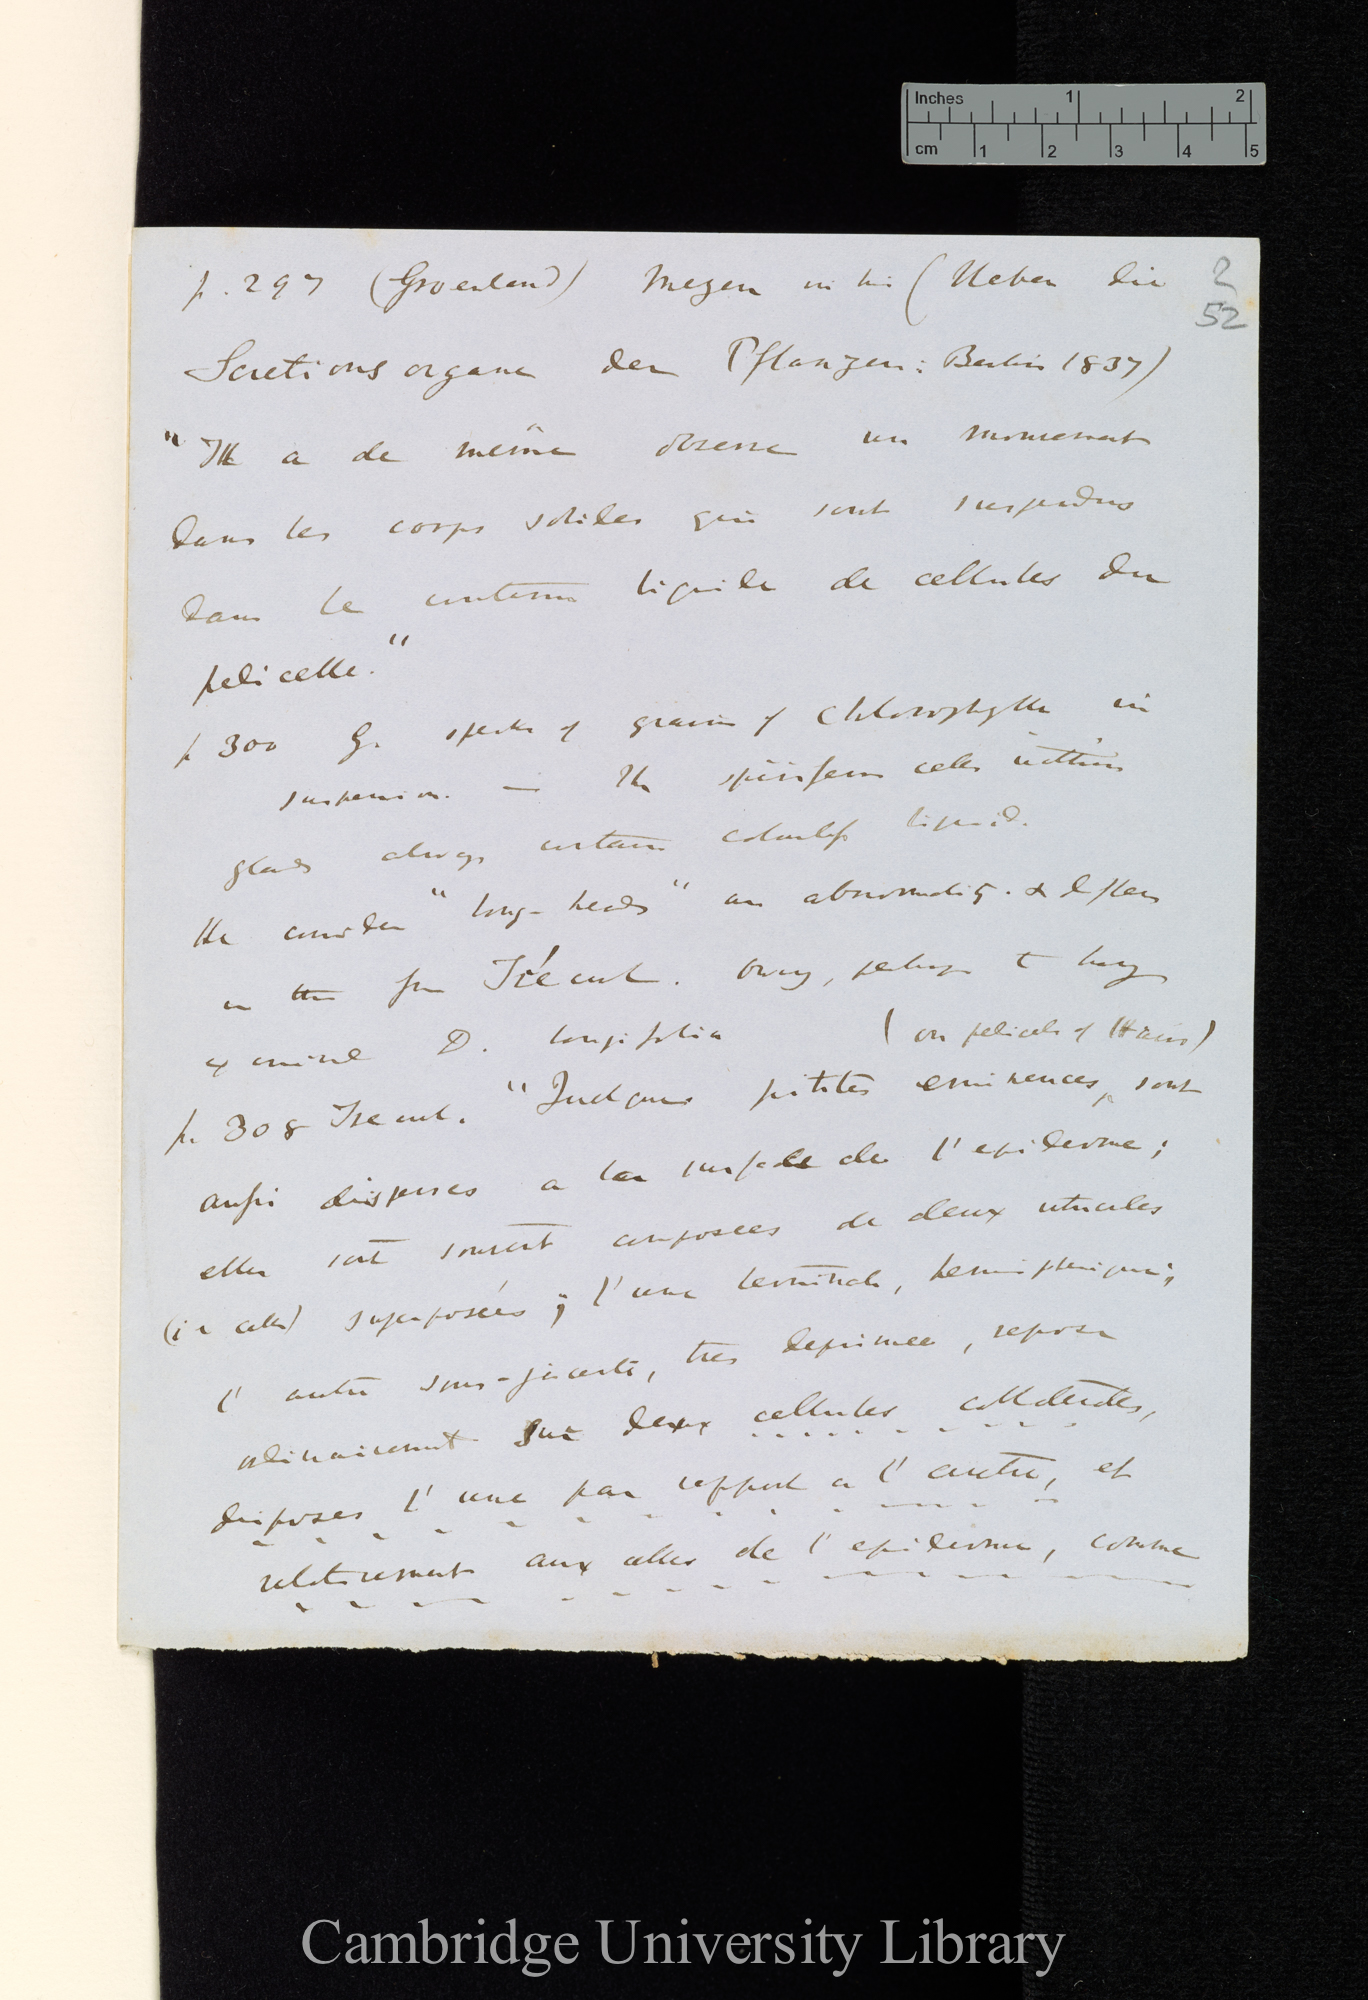 Inches 1 2
cm 1 2 3 4 5
2
52
p. 297 (Groenland) Meyen in his (Ueber die
Secretions organe der Pflanzen: Berlin 1837)
"Il a de même observé un mouvement
dans les corps solides qui sont suspendus
dans le contenu liquide de cellules du
pedicelle."
p 300 G. speaks of grains of Chlorophylle in
suspension. — The spiriferous cells within
glands always contain colourless liquid.
He considers "long-heads" an abnormality. & differs
in this from Trécul. owing, perhaps to having
examined D. longifolia (on pedicels of Hairs)
p. 308 Trecul. "Quelques petites eminences, sont
aussi disperses a la surface de l'epiderme;
elles sont souvent composees de deux utricules
(i e cells) superposées; l'une terminale, hemispherique;
l'autre sous-jacente, tres deprimee, repose
ordinairement sur deux cellules collaterales,
disposes l'une par rapport a l'autre, et
relativement aux celles de l'epiderme, comme
Cambridge University Library